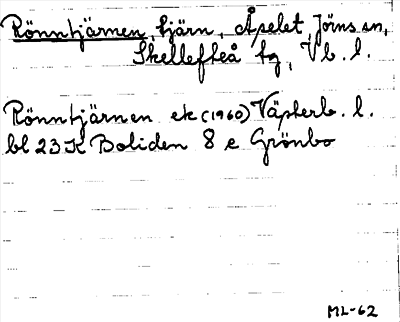 Rönntjärnen, tjärn, Åpelet, Jörns sn,
Skellefteå tg, Vb. l.
Rönntjärnen ek (1960) Västerb. l.
bl 23 K Boliden 8 e Grönbo
ML-62